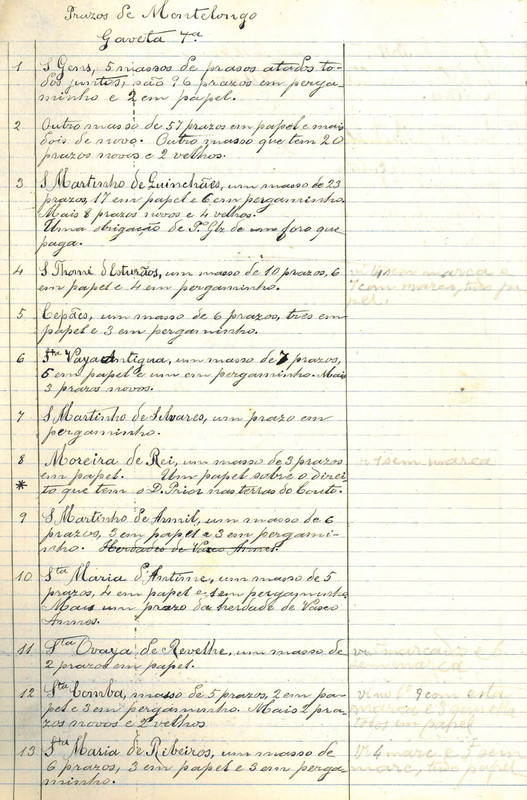 Prazos de Montelongo
Gaveta 7ª
1 S Gens, 5 massos de prasos atados to-
dos juntos, são 96 prazos em perga-
minho e 2 em papel.
2 Outro masso de 57 prazos em papel e mais
dois de novo. Outro masso que tem 20
prazos novos e 2 velhos.
3 S Martinho de Guinchães, um masso de 23
prazos, 17 em papel e 6 em pergaminho.
Mais 8 prazos novos e 4 velhos.
Uma obrigação de P.º Glz de um foro que
paga.
4 S Thomé d'Esturãos, um masso de 10 prazos, 6
em papel e 4 em pergaminho.
vi 4 sem marca e
7 com marca, tudo pa
pel.
5 Cepães, um masso de 6 prazos, tres em
papel e 3 em pergaminho.
6 Stª Vaya Antigua, um masso de 7 prazos,
5 em papel e um em pergaminho. Mais
3 prazos novos.
7 S Martinho de Silvares, um prazo em
pergaminho.
8 Moreira de Rei, um masso de 3 prazos
em papel. Um papel sobre o direi-
* to que tem o D. Prior nas terras do Couto.
vi 1 sem marca
9 S Martinho de Armil, um masso de 6
prazos, 3 em papel e 3 em pergami-
nho. Herdades de Vasco Annes.
10 Stª Maria d'Antime, um masso de 5
prazos, 4 em papel e 1 em pergaminho
Mais um prazo da herdade de Vasco
Annes.
11 Stª Ovaya de Revelhe, um masso de
2 prazos em papel.
marcad e 6
sem marca
12 Stª Comba, masso de 5 prazos, 2 em pa-
pel e 3 em pergaminho. Mais 2 pra-
zos novos e 2 velhos
9 com
marca, e 3
todos em papel
13 Stª Maria de Ribeiros, um masso de
6 prazos, 3 em papel e 3 em perga-
minho.
Vi 4 marc e 5 sem
marc, tudo papel